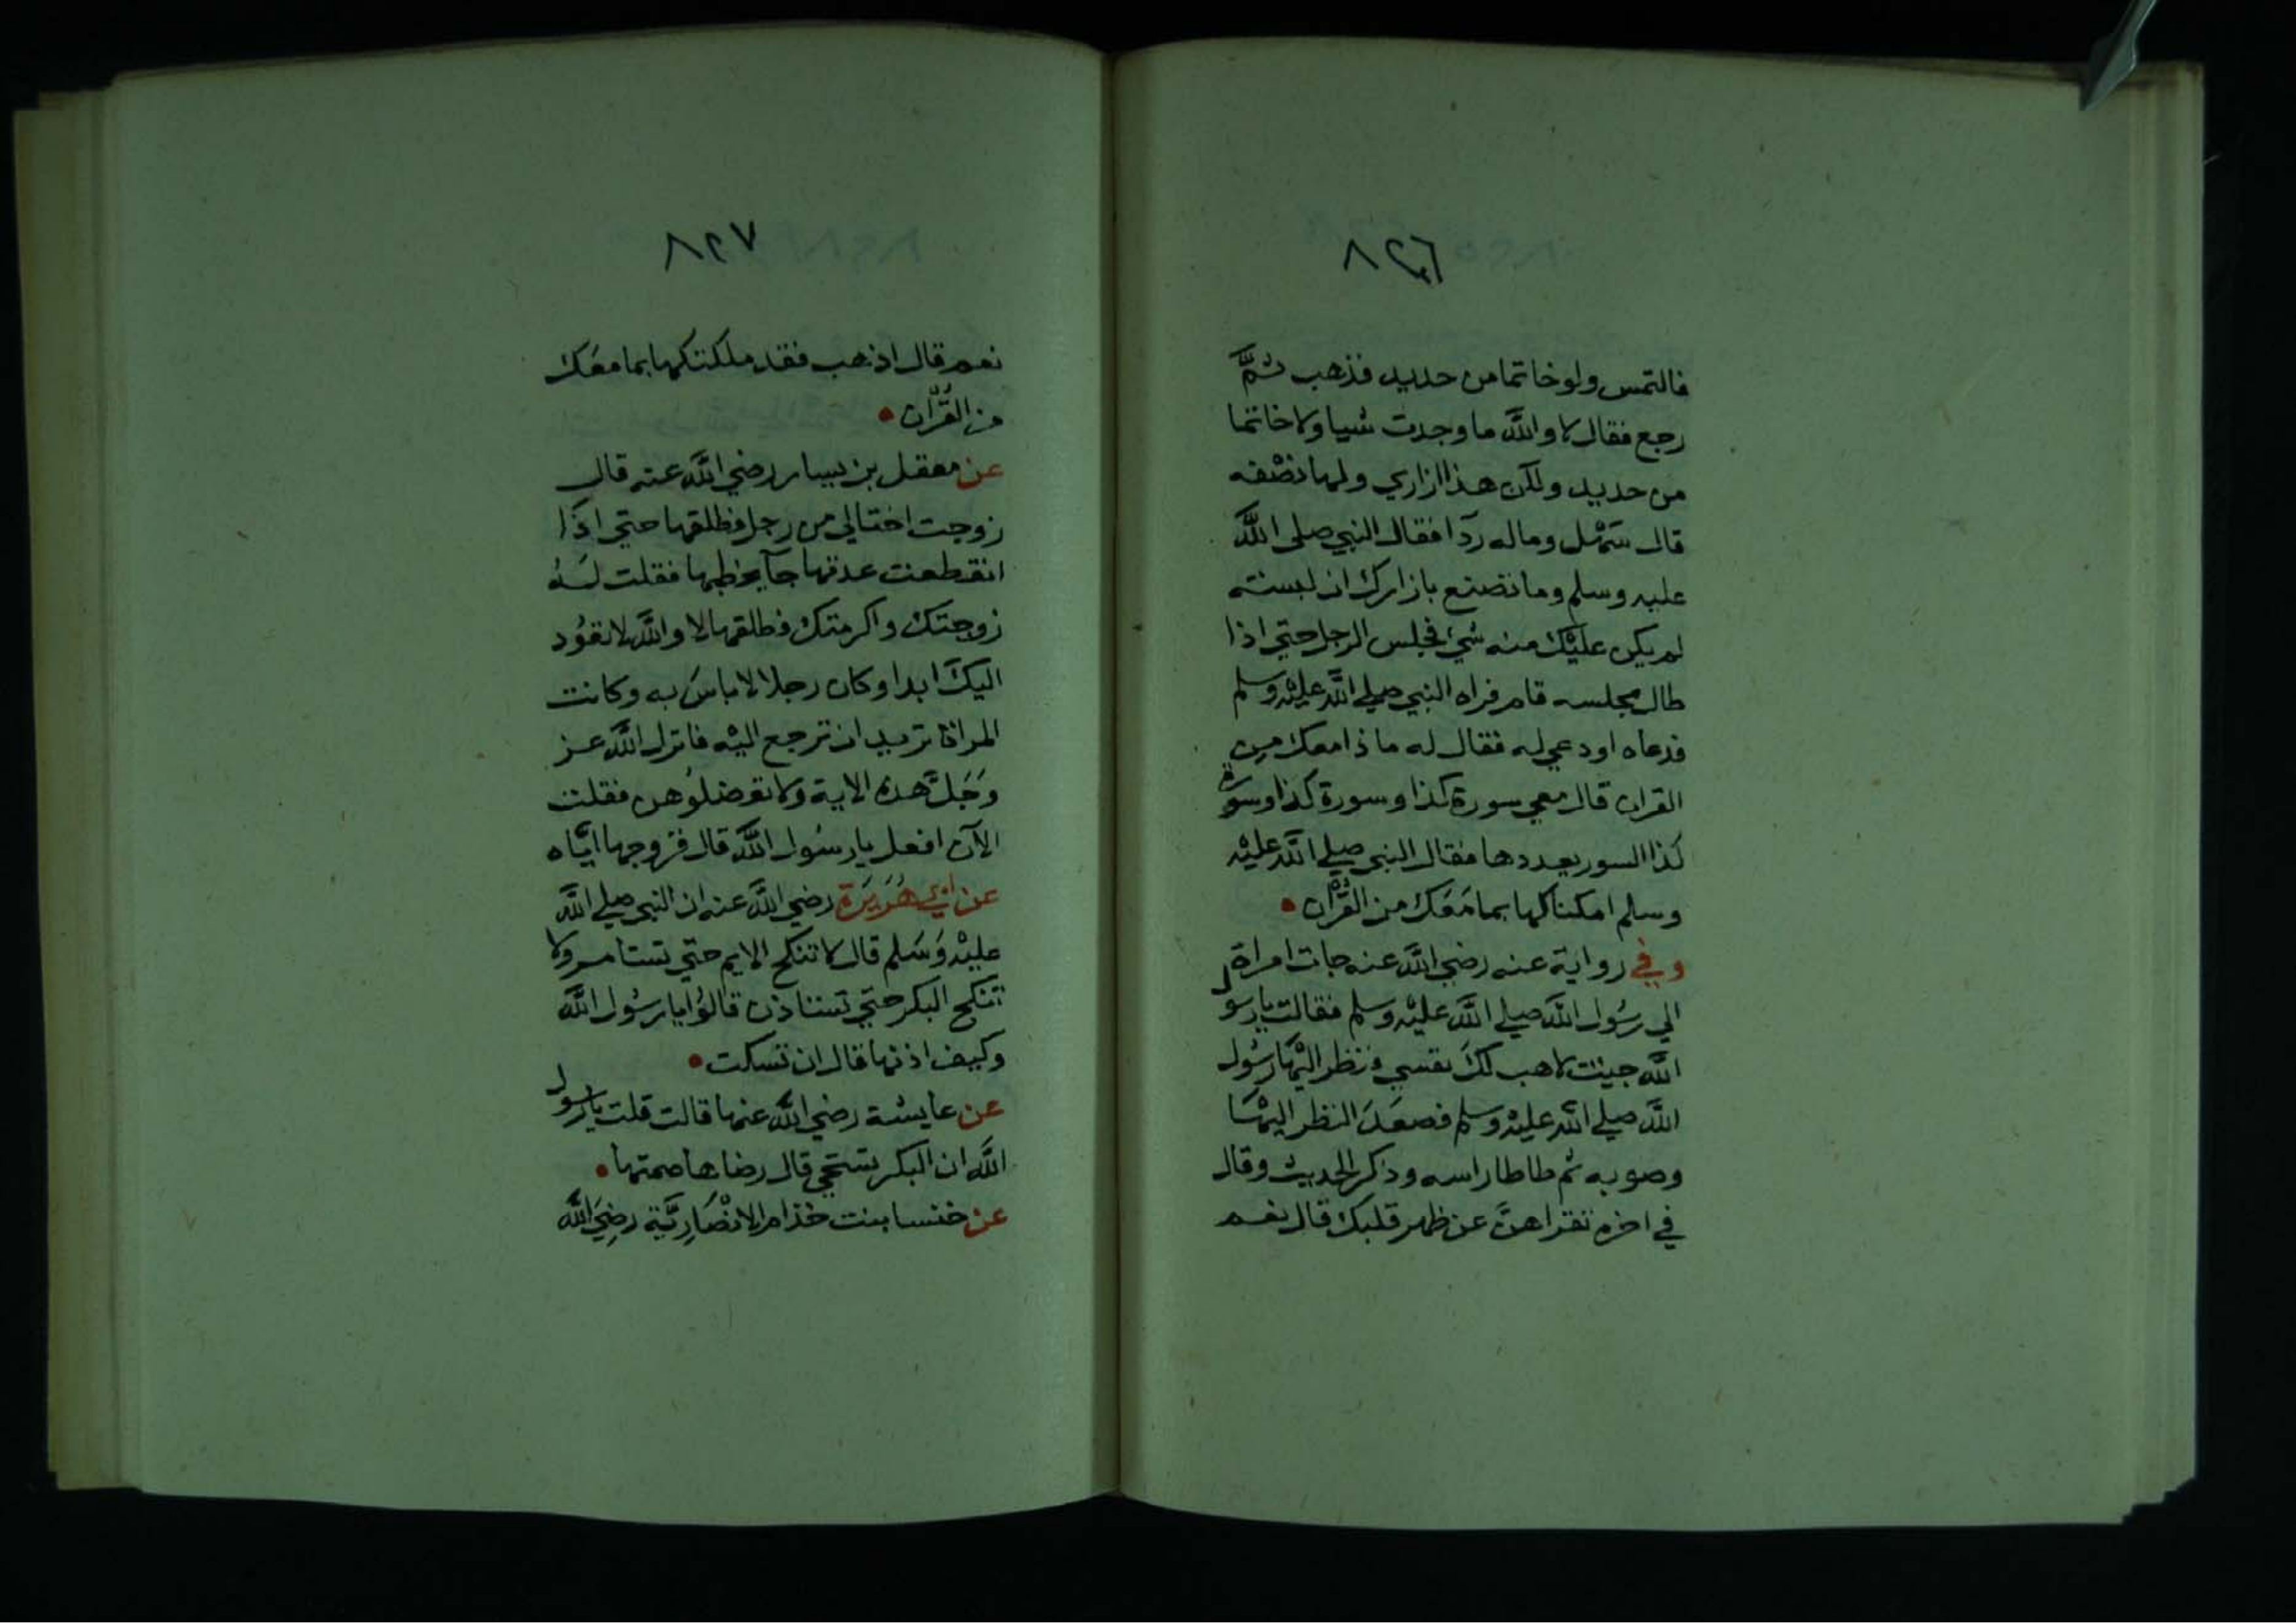 ٨٢٦
فالتمس ولو خاتما من حديد فذهب ثمَّ
رجع فقال لا واللَّه ما وجدت شيا ولا خاتما
من حديد ولكن هذا ازاري ولها نصْفه
قال سَهْل وماله ردآ فقال النبي صلى اللَّه
عليه وسلم وما تصنع بازارك ان لبسته
لم يكن عليْك منه شيء فجلس الرجل حتي اذا
طال مجلسه قام فراه النبي صلي اللَّه عليْه وسلم
فدعاه او دعي له فقال له ما ذا معك من
القران قال معي سورة كذا وسورة كذا وسورة
كذا السور يعددها فقال النبي صلي اللَّه عليْه
وسلم امكناكها بما مَعَك من القُرْآن
وفي رواية عنه رضي اللَّه عنه جات امراة
الي رسُول اللَّه صلي اللَّه عليْه وسلم فقالت يا رسول
اللَّه جيت لاهب لكَ نفسي فنظر اليْها رسُول
اللَّه صلي اللَّه عليْه وسلم فصعَدَ النظر اليْهَا
وصوبه ثم طاطا راسه وذكر الحديث وقال
في اخره تقراهنَّ عن ظهر قلبك قال نعم
٨٢٧
نعم قال اذهب فقد ملكتكها بما معَك
من القُرْآن
عن معقل بن يسار رضي اللَّه عنه قال
زوجت اختا لي من رجل فطلقها حتي اذَا
انقطعت عدتها جآ يخطبها فقلت لَهُ
زوجتك واكرمتك فطلقتها لا واللَّه لا تعُود
اليكَ ابدا وكان رجلا لا باسَ به وكانت
المراة تريد ان ترجع اليْه فانزل اللَّه عز
وَجَلَّ هذه الاية ولا تعضلُوهن فقلت
الآن افعل يا رسُول اللَّه قال فزوجها ايَّاه
عن ابي هُرَيرَة رضي اللَّه عنه ان النبي صلي اللَّه
عليْه وَسَلم قال لا تنكح الايم حتي تستامر ولا
تنكح البكر حتي تستاذن قالوُا يا رسُول اللَّه
وكيف اذنها قال ان تسكت
عن عايشة رضي اللَّه عنها قالت قلت يا رسول
اللَّه ان البكر تستحي قال رضاها صمتها
عن خنسا بنت خذام الانْصَارِيَّة رضِيَ اللَّه